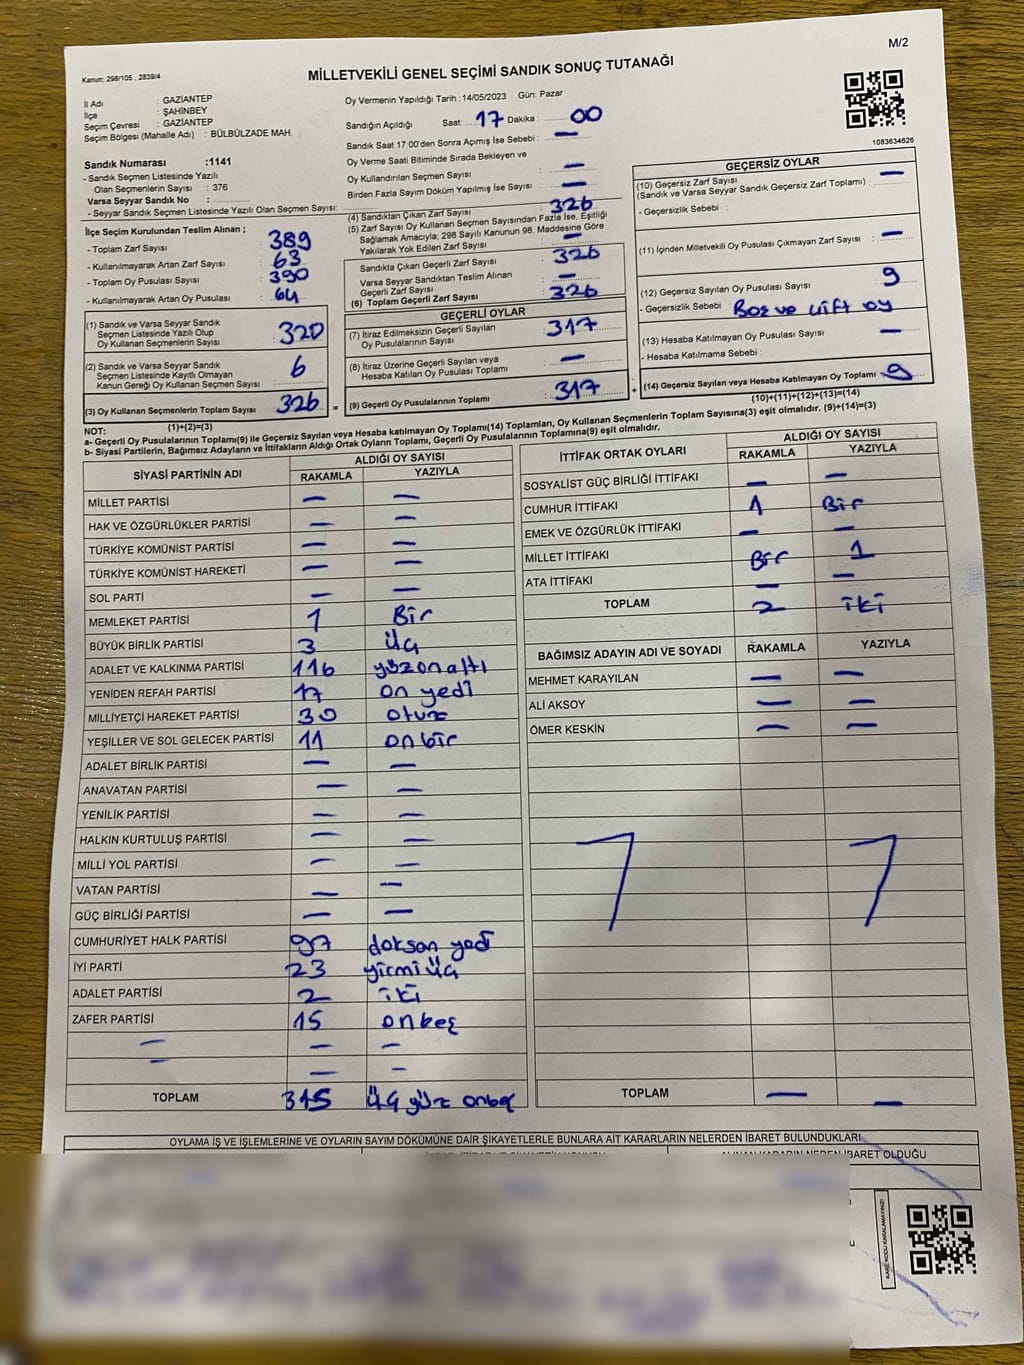 M/2
Kanun: 298/105 , 2839/4
MİLLETVEKİLİ GENEL SEÇİMİ SANDIK SONUÇ TUTANAĞI
1083634626
İl Adı : GAZİANTEP
İlçe : ŞAHİNBEY
Seçim Çevresi : GAZİANTEP
Seçim Bölgesi (Mahalle Adı) : BÜLBÜLZADE MAH.
Sandık Numarası :1141
- Sandık Seçmen Listesinde Yazılı
Olan Seçmenlerin Sayısı : 376
Varsa Seyyar Sandık No :
- Seyyar Sandık Seçmen Listesinde Yazılı Olan Seçmen Sayısı:
İlçe Seçim Kurulundan Teslim Alınan ;
- Toplam Zarf Sayısı : 389
- Kullanılmayarak Artan Zarf Sayısı : 63
- Toplam Oy Pusulası Sayısı : 390
- Kullanılmayarak Artan Oy Pusulası : 64
(1) Sandık ve Varsa Seyyar Sandık
Seçmen Listesinde Yazılı Olup
Oy Kullanan Seçmenlerin Sayısı : 320
(2) Sandık ve Varsa Seyyar Sandık
Seçmen Listesinde Kayıtlı Olmayan
Kanun Gereği Oy Kullanan Seçmen Sayısı : 6
(3) Oy Kullanan Seçmenlerin Toplam Sayısı : 326
(1)+(2)=(3)
Oy Vermenin Yapıldığı Tarih :14/05/2023 Gün: Pazar
Sandığın Açıldığı Saat 17 Dakika : 00
Sandık Saat 17:00'den Sonra Açımış İse Sebebi : —
Oy Verme Saati Bitiminde Sırada Bekleyen ve
Oy Kullandırılan Seçmen Sayısı : —
Birden Fazla Sayım Döküm Yapılmış İse Sayısı : —
(4) Sandıktan Çıkan Zarf Sayısı : 326
(5) Zarf Sayısı Oy Kullanan Seçmen Sayısından Fazla İse, Eşitliği
Sağlamak Amacıyla; 298 Sayılı Kanunun 98. Maddesine Göre
Yakılarak Yok Edilen Zarf Sayısı : —
Sandıkta Çıkan Geçerli Zarf Sayısı : 326
Varsa Seyyar Sandıktan Teslim Alınan
Geçerli Zarf Sayısı : —
(6) Toplam Geçerli Zarf Sayısı : 326
GEÇERLİ OYLAR
(7) İtiraz Edilmeksizin Geçerli Sayılan
Oy Pusulalarının Sayısı : 317
(8) İtiraz Üzerine Geçerli Sayılan veya
Hesaba Katılan Oy Pusulası Toplamı : —
= (9) Geçerli Oy Pusulalarının Toplamı : 317
GEÇERSİZ OYLAR
(10) Geçersiz Zarf Sayısı
(Sandık ve Varsa Seyyar Sandık Geçersiz Zarf Toplamı) : —
- Geçersizlik Sebebi :
(11) İçinden Milletvekili Oy Pusulası Çıkmayan Zarf Sayısı : —
(12) Geçersiz Sayılan Oy Pusulası Sayısı : 9
- Geçersizlik Sebebi : Boş ve çift oy
(13) Hesaba Katılmayan Oy Pusulası Sayısı : —
- Hesaba Katılmama Sebebi :
+ (14) Geçersiz Sayılan veya Hesaba Katılmayan Oy Toplamı : 9
(10)+(11)+(12)+(13)=(14)
NOT:
a- Geçerli Oy Pusulalarının Toplamı(9) ile Geçersiz Sayılan veya Hesaba katılmayan Oy Toplamı(14) Toplamları, Oy Kullanan Seçmenlerin Toplam Sayısına(3) eşit olmalıdır. (9)+(14)=(3)
b- Siyasi Partilerin, Bağımsız Adayların ve İttifakların Aldığı Ortak Oyların Toplamı, Geçerli Oy Pusulalarının Toplamına(9) eşit olmalıdır.
SİYASİ PARTİNİN ADI ALDIĞI OY SAYISI
RAKAMLA YAZIYLA
MİLLET PARTİSİ — —
HAK VE ÖZGÜRLÜKLER PARTİSİ — —
TÜRKİYE KOMÜNİST PARTİSİ — —
TÜRKİYE KOMÜNİST HAREKETİ — —
SOL PARTİ — —
MEMLEKET PARTİSİ 1 Bir
BÜYÜK BİRLİK PARTİSİ 3 üç
ADALET VE KALKINMA PARTİSİ 116 yüzonaltı
YENİDEN REFAH PARTİSİ 17 on yedi
MİLLİYETÇİ HAREKET PARTİSİ 30 otuz
YEŞİLLER VE SOL GELECEK PARTİSİ 11 onbir
ADALET BİRLİK PARTİSİ — —
ANAVATAN PARTİSİ — —
YENİLİK PARTİSİ — —
HALKIN KURTULUŞ PARTİSİ — —
MİLLİ YOL PARTİSİ — —
VATAN PARTİSİ — —
GÜÇ BİRLİĞİ PARTİSİ — —
CUMHURİYET HALK PARTİSİ 97 doksan yedi
İYİ PARTİ 23 yirmi üç
ADALET PARTİSİ 2 iki
ZAFER PARTİSİ 15 onbeş
— — —
— — —
TOPLAM 315 üç yüz onbeş
İTTİFAK ORTAK OYLARI ALDIĞI OY SAYISI
RAKAMLA YAZIYLA
SOSYALİST GÜÇ BİRLİĞİ İTTİFAKI — —
CUMHUR İTTİFAKI 1 Bir
EMEK VE ÖZGÜRLÜK İTTİFAKI — —
MİLLET İTTİFAKI Bir 1
ATA İTTİFAKI — —
TOPLAM 2 iki
BAĞIMSIZ ADAYIN ADI VE SOYADI RAKAMLA YAZIYLA
MEHMET KARAYILAN — —
ALİ AKSOY — —
ÖMER KESKİN — —
TOPLAM — —
OYLAMA İŞ VE İŞLEMLERİNE VE OYLARIN SAYIM DÖKÜMÜNE DAİR ŞİKAYETLERLE BUNLARA AİT KARARLARIN NELERDEN İBARET BULUNDUKLARI
ALINAN KARARIN NEDEN İBARET OLDUĞU
KARE KODU KARALAMAYINIZ!